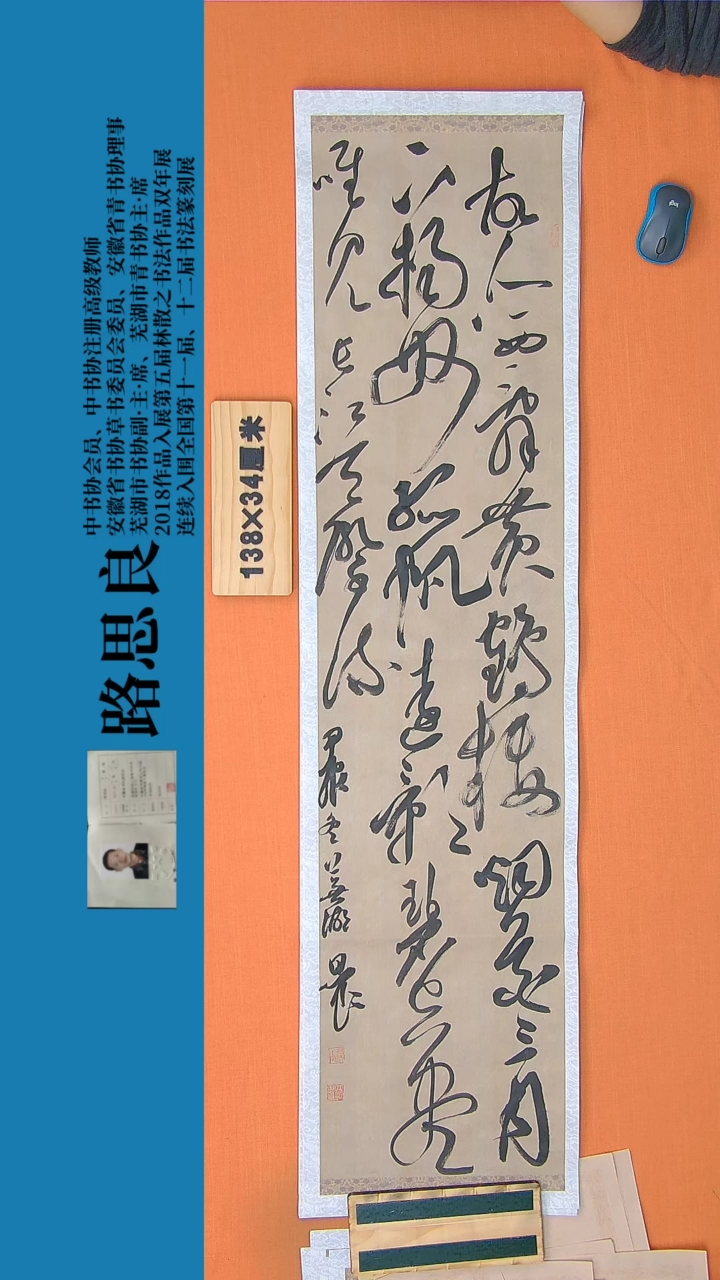 路思良
中书协会员、中书协注册高级教师
安徽省书协草书委员会委员、安徽省青书协理事
芜湖市书协副·主·席、芜湖市青书协主·席
2018作品入展第五届林散之书法作品双年展
连续入围全国第十一届、十二届书法篆刻展
138×34厘米
故人西辞黄鹤楼烟花三月
下扬州孤帆远影碧空尽
唯见长江天际流
冬于芜湖
logi